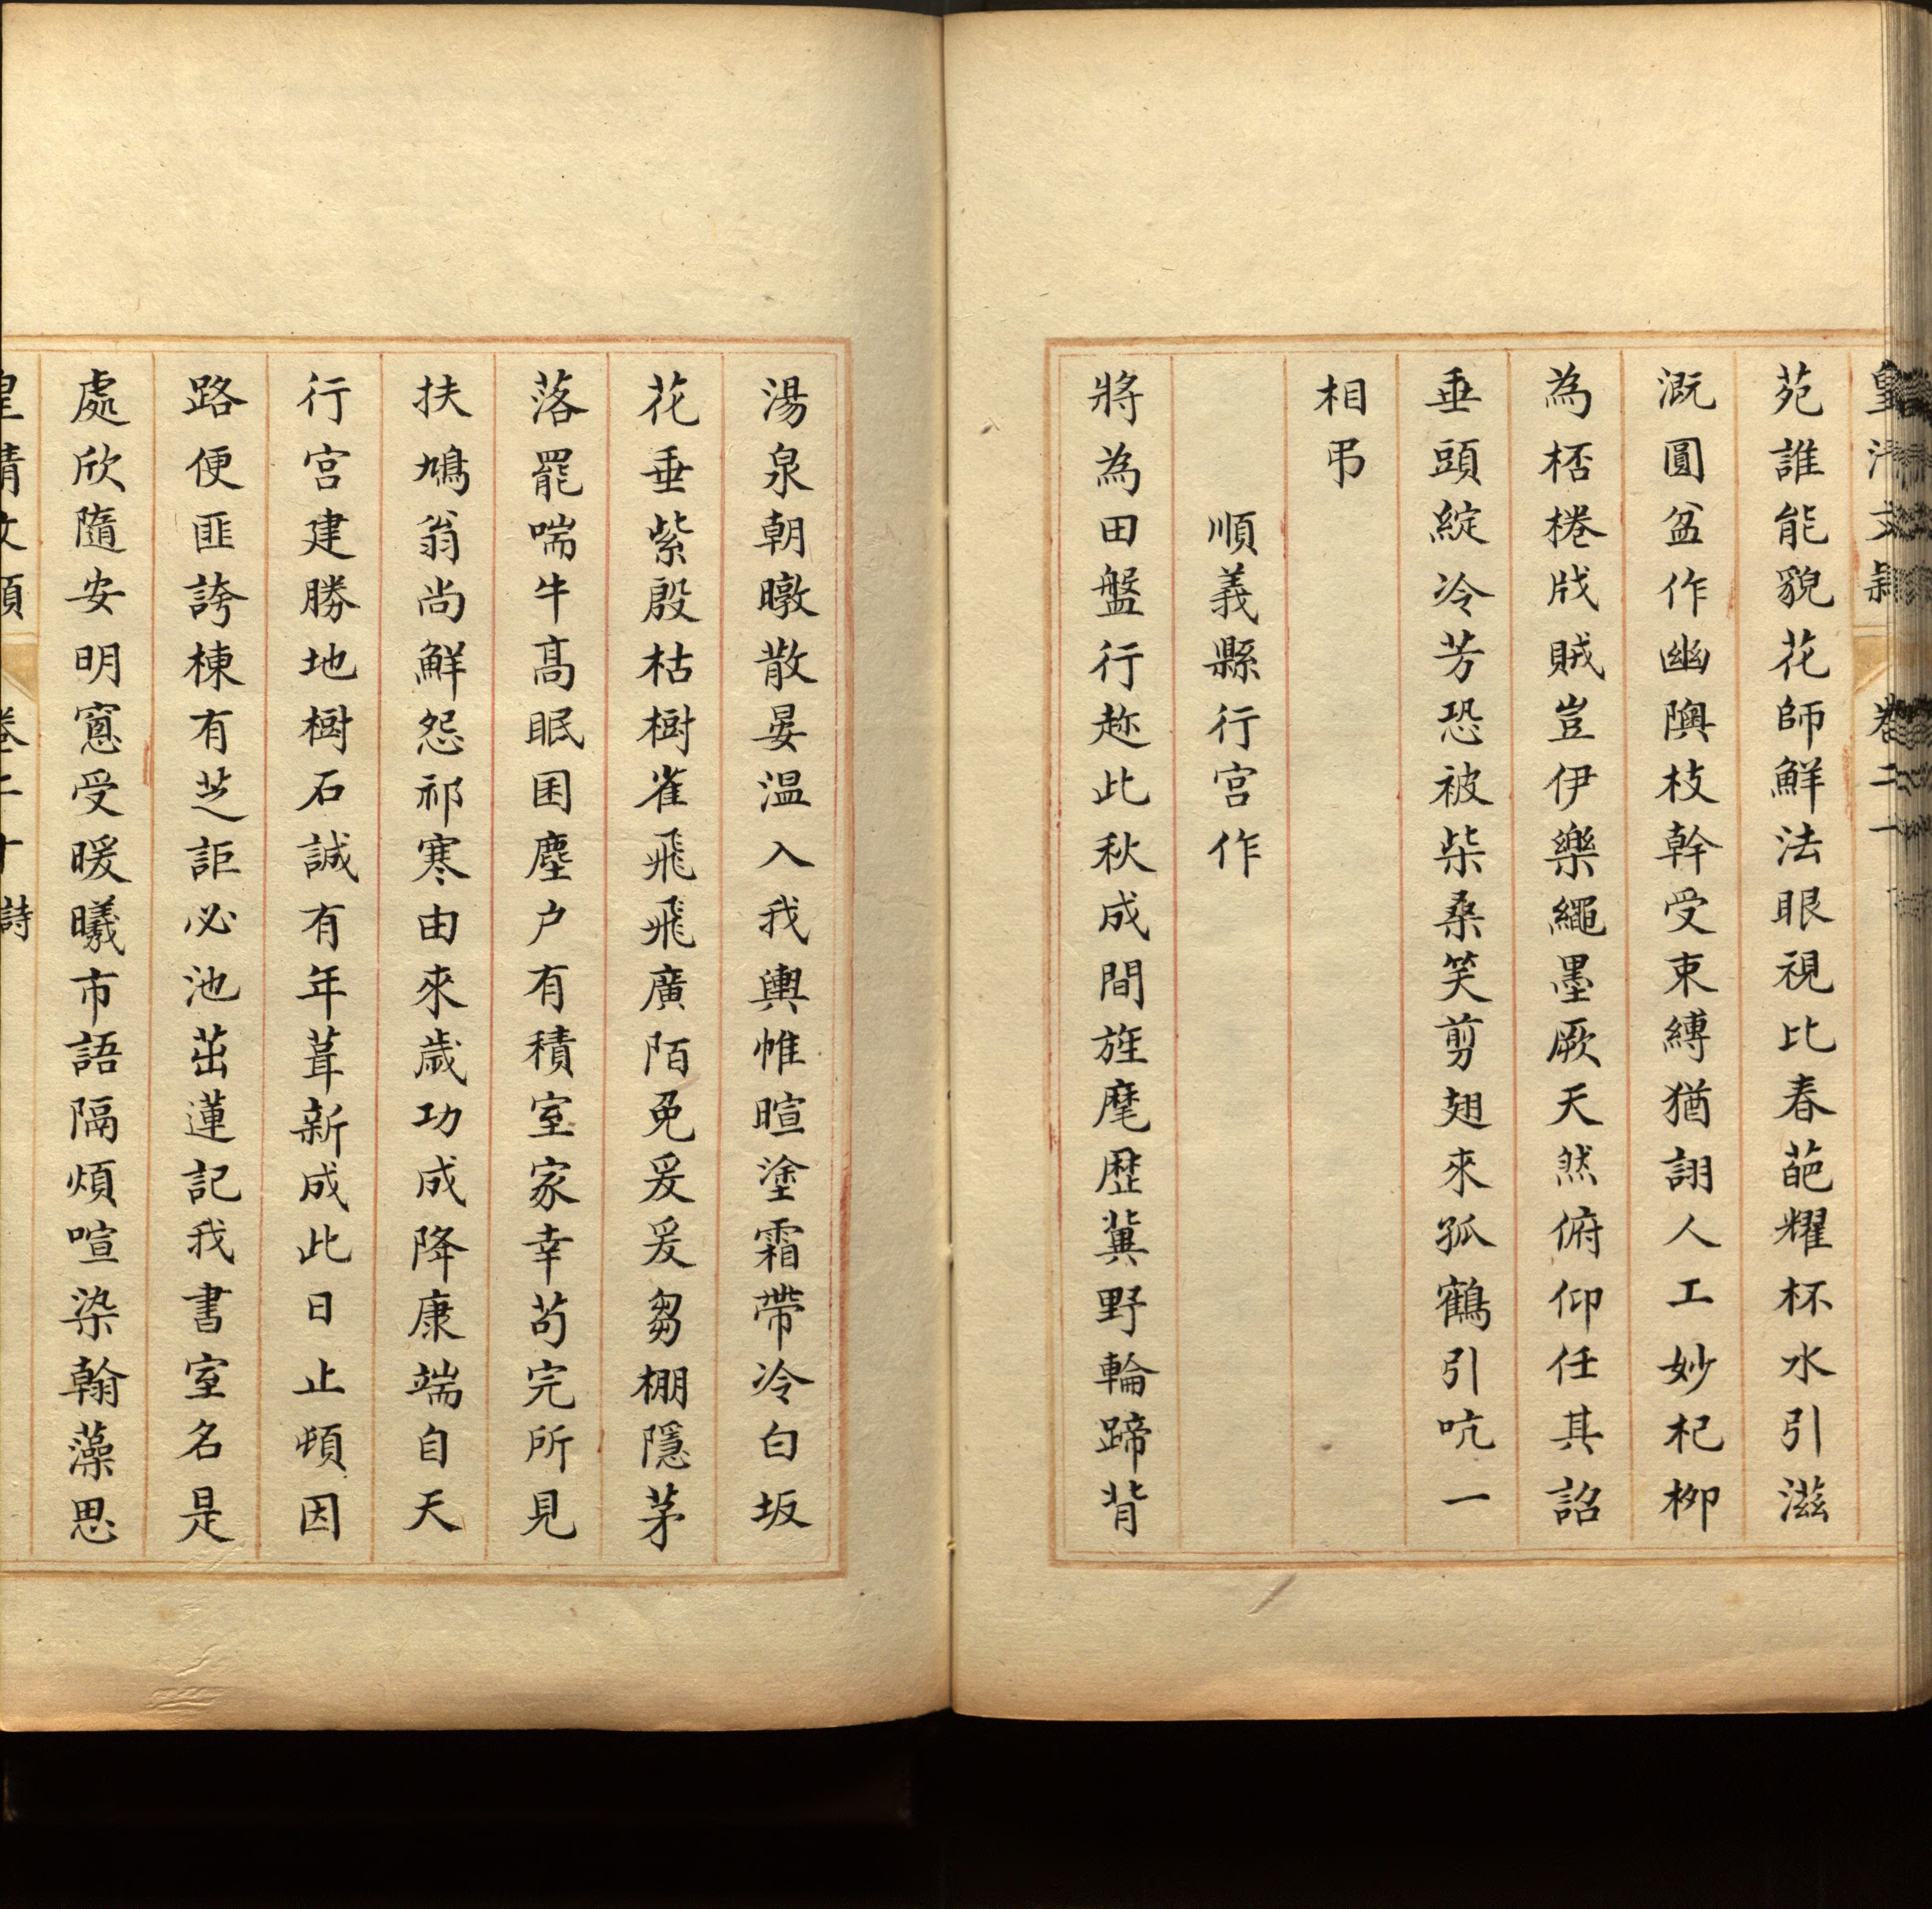 苑誰能貌花師鮮法眼視比春葩耀杯水引滋
溉圓盆作幽隩枝幹受束縛猶詡人工妙杞栁
為桮棬戕賊豈伊樂繩墨厥天然俯仰任其詔
垂頭綻冷芳恐被柴桑笑剪翅來孤鶴引吭一
相弔
順義縣行宮作
將為田盤行趂此秋成間旌麾歴冀野輪蹄背
湯泉朝暾散晏温入我輿帷暄塗霜帶冷白坂
花垂紫殷枯樹雀飛飛廣陌兔爰爰芻棚隱茅
落罷喘牛髙眠囷塵户有積室家幸苟完所見
扶鳩翁尚鮮怨祁寒由來歲功成降康端自天
行宮建勝地樹石誠有年葺新成此日止頓因
路便匪誇棟有芝詎必池茁蓮記我書室名是
處欣隨安明窻受暖曦市語隔煩喧染翰藻思